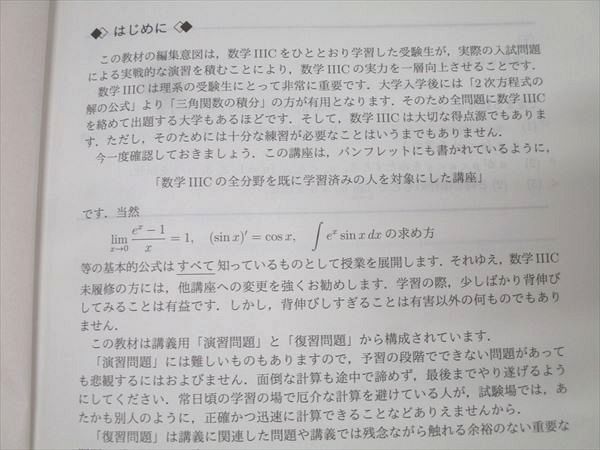 はじめに
この教材の編集意図は，数学 IIIC をひととおり学習した受験生が，実際の入試問題
による実戦的な演習を積むことにより，数学 IIIC の実力を一層向上させることです．
数学 IIIC は理系の受験生にとって非常に重要です．大学入学後には「2 次方程式の
解の公式」より「三角関数の積分」の方が有用となります．そのため全問題に数学 IIIC
を絡めて出題する大学もあるほどです．そして，数学 IIIC は大切な得点源でもありま
す．ただし，そのためには十分な練習が必要なことはいうまでもありません．
今一度確認しておきましょう．この講座は，パンフレットにも書かれているように，
「数学 IIIC の全分野を既に学習済みの人を対象にした講座」
です．当然
lim_{x→0} (e^x − 1)/x = 1, (sin x)′ = cos x, ∫ e^x sin x dx の求め方
等の基本的公式はすべて知っているものとして授業を展開します．それゆえ，数学 IIIC
未履修の方には，他講座への変更を強くお勧めします．学習の際，少しばかり背伸び
してみることは有益です．しかし，背伸びしすぎることは有害以外の何ものでもあり
ません．
この教材は講義用「演習問題」と「復習問題」から構成されています．
「演習問題」には難しいものもありますので，予習の段階でできない問題があって
も悲観するにはおよびません．面倒な計算も途中で諦めず，最後までやり遂げるよう
にしてください．常日頃の学習の場で厄介な計算を避けている人が，試験場では，あ
たかも別人のように，正確かつ迅速に計算できることなどありえませんから．
「復習問題」は講義に関連した問題や講義では残念ながら触れる余裕のない重要な